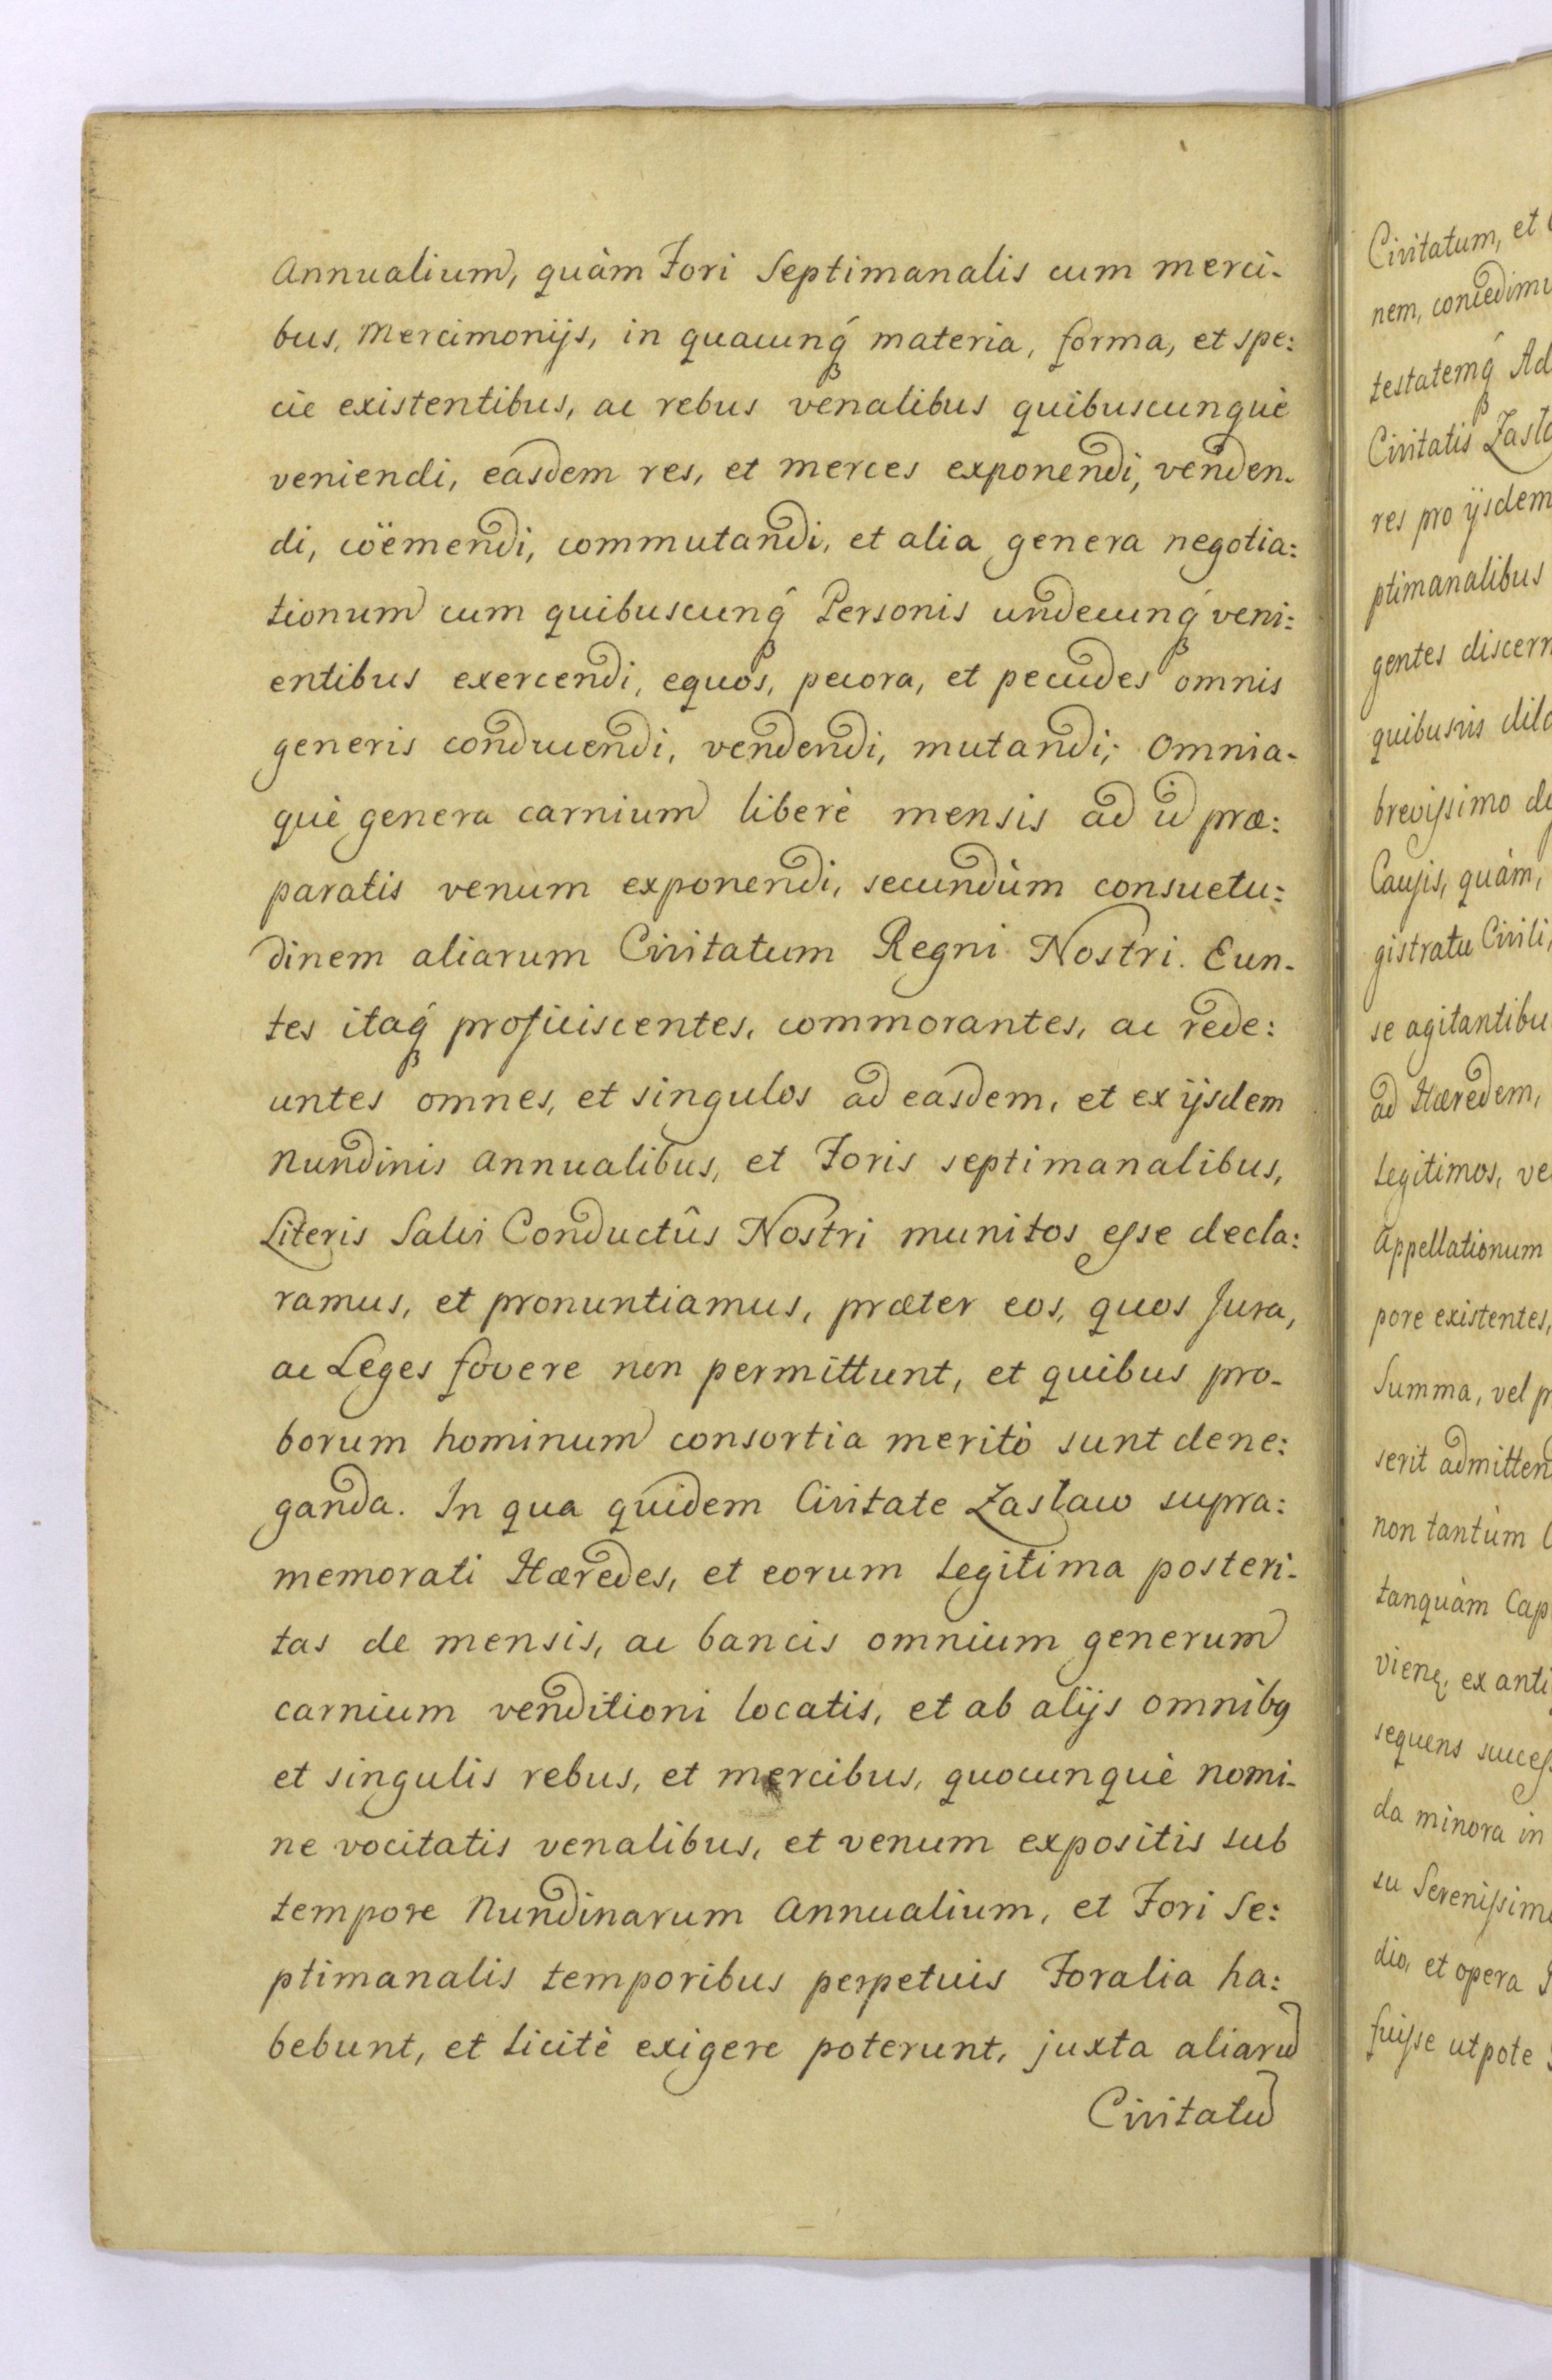 Annualium, quàm Fori Septimanalis cum merci-
bus, Mercimonijs, in quacunq́ materia, forma, et spe:
cie existentibus, ac rebus venalibus quibuscunquè
veniendi, easdem res, et merces exponendi, venden-
di, coëmendi, commutandi, et alia genera negotia:
tionum cum quibuscunq́ Personis undecunq́ veni:
entibus exercendi, equos, pecora, et pecudes omnis
generis conducendi, vendendi, mutandi; Omnia-
què genera carnium liberè mensis ad id præ:
paratis venum exponendi, secundùm consuetu:
dinem aliarum Civitatum Regni Nostri. Eun-
tes itaq́ proficiscentes, commorantes, ac rede:
untes omnes, et singulos ad easdem, et ex ijsdem
Nundinis Annualibus, et Foris septimanalibus,
Literis Salvi Conductûs Nostri munitos esse decla:
ramus, et pronuntiamus, præter eos, quos Jura,
ac Leges fovere non permittunt, et quibus pro-
borum hominum consortia meritò sunt dene:
ganda. In qua quidem Civitate Zasław supra:
memorati Hæredes, et eorum Legitima posteri-
tas de mensis, ac bancis omnium generum
carnium venditioni locatis, et ab alijs omnibꝰ
et singulis rebus, et mercibus, quocunquè nomi-
ne vocitatis venalibus, et venum expositis sub
tempore Nundinarum Annualium, et Fori Se:
ptimanalis temporibus perpetuis Foralia ha:
bebunt, et Licitè exigere poterunt, juxta aliarũ
Civitatũ
Civitatum, et
nem, concedimu
testatemq́ Ad
Civitatis Zasła
res pro ijsdem
ptimanalibus
gentes discern
quibusvis dila
brevissimo de
Causis, quàm,
gistratu Civili,
se agitantibu
ad Hæredem,
Legitimos, ve
Appellationum
pore existentes,
Summa, vel p
serit admitten
non tantùm C
tanquàm Cap
vienę, ex anti
sequens succes
da minora in
su Serenissim
dio, et opera
fuisse utpote